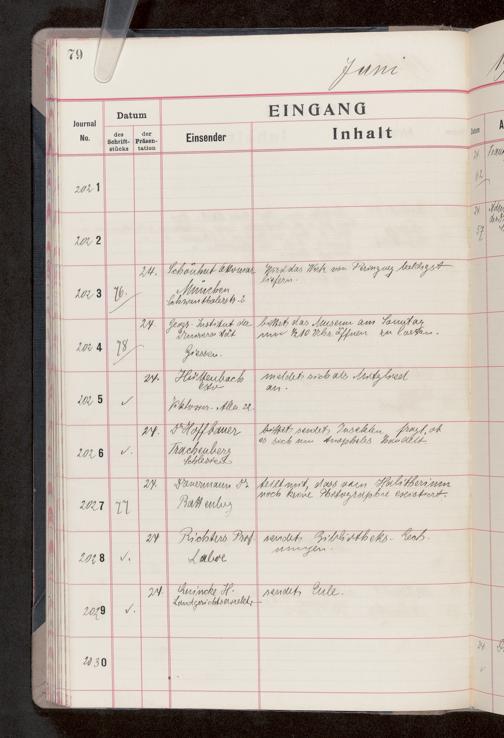 79
Juni
EINGANG
Journal No.
Datum
des Schrift-stücks
der Präsen-tation
Einsender
Inhalt
2021
2022
2023 76. 24. Schönhut Ottomar
München
Schwanthalerstr. 2
wird das Werk von baldigst
liefern.
2024 78 24. Geogr. Institut der
Universität
Giessen.
bittet das Museum am Sonntag
um 1/2 10 Uhr öffnen zu lassen.
2025 ✓ 24. Hüttenbach
Viktoria-Allee 21.
meldet sich als Mitglied
an.
2026 ✓. 24. Dr Hoffbauer
Trachenberg
Schlesien
sendet Insekten, fragt, ob
es sich um Anopheles handelt
2027 77 24. Dr.
Battenberg
teilt mit, dass vom Halitherium
noch keine Photographie existiert.
2028 ✓. 24 Richters Prof.
sendet Bibliotheks-Rech-
nungen.
2029 ✓. 24. Quincke H.
sendet Eule.
2030